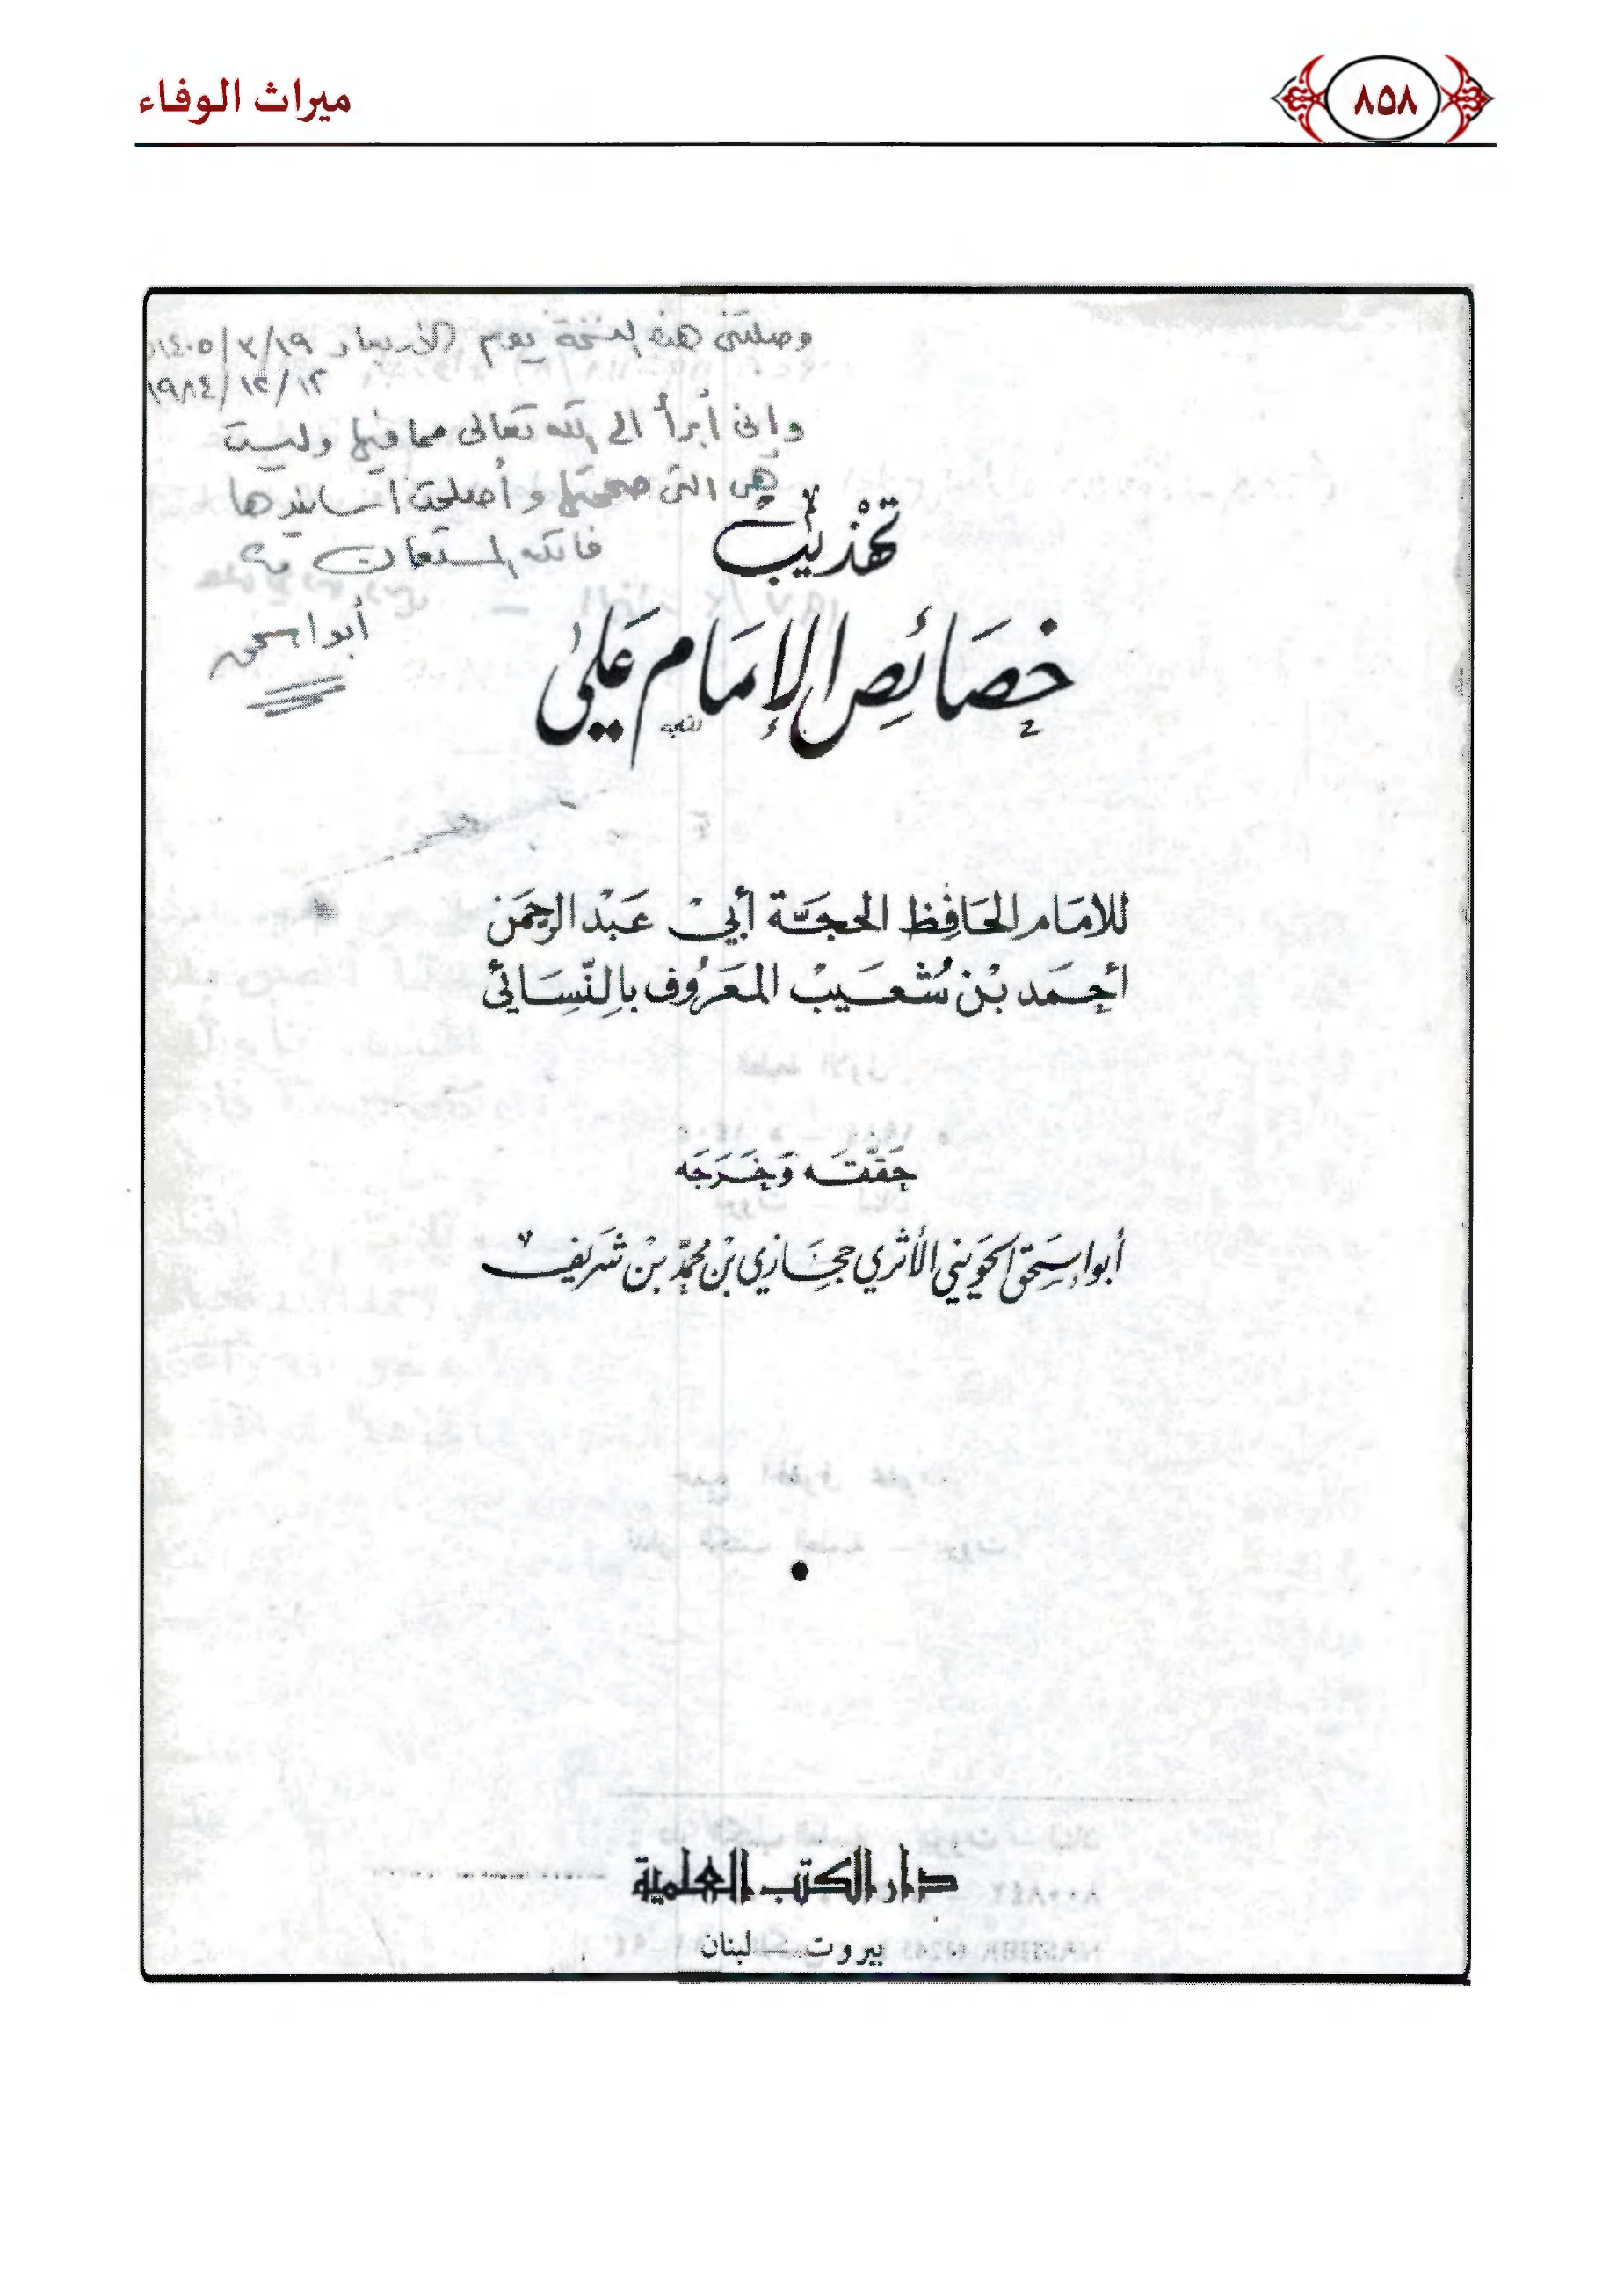 ٨٥٨
ميراث الوفاء
وصلتني هذه النسخة يوم الأربعاء ١٤٠٥/٣/١٩
١٩٨٤/١٢/١٢
واني أبرأ الى الله تعالى مما فيها وليست
هى التى صححتها وأصلحت أسانيدها
فالله المستعان
أبو اسحق
تهذيب
خصائص الإمام علي
للامام الحافظ الحجة أبي عبد الرحمن
أحمد بن شعيب المعروف بالنسائي
حققه وخرجه
أبو إسحق الحويني الأثري حجازي بن محمد بن شريف
دار الكتب العلمية
بيروت - لبنان